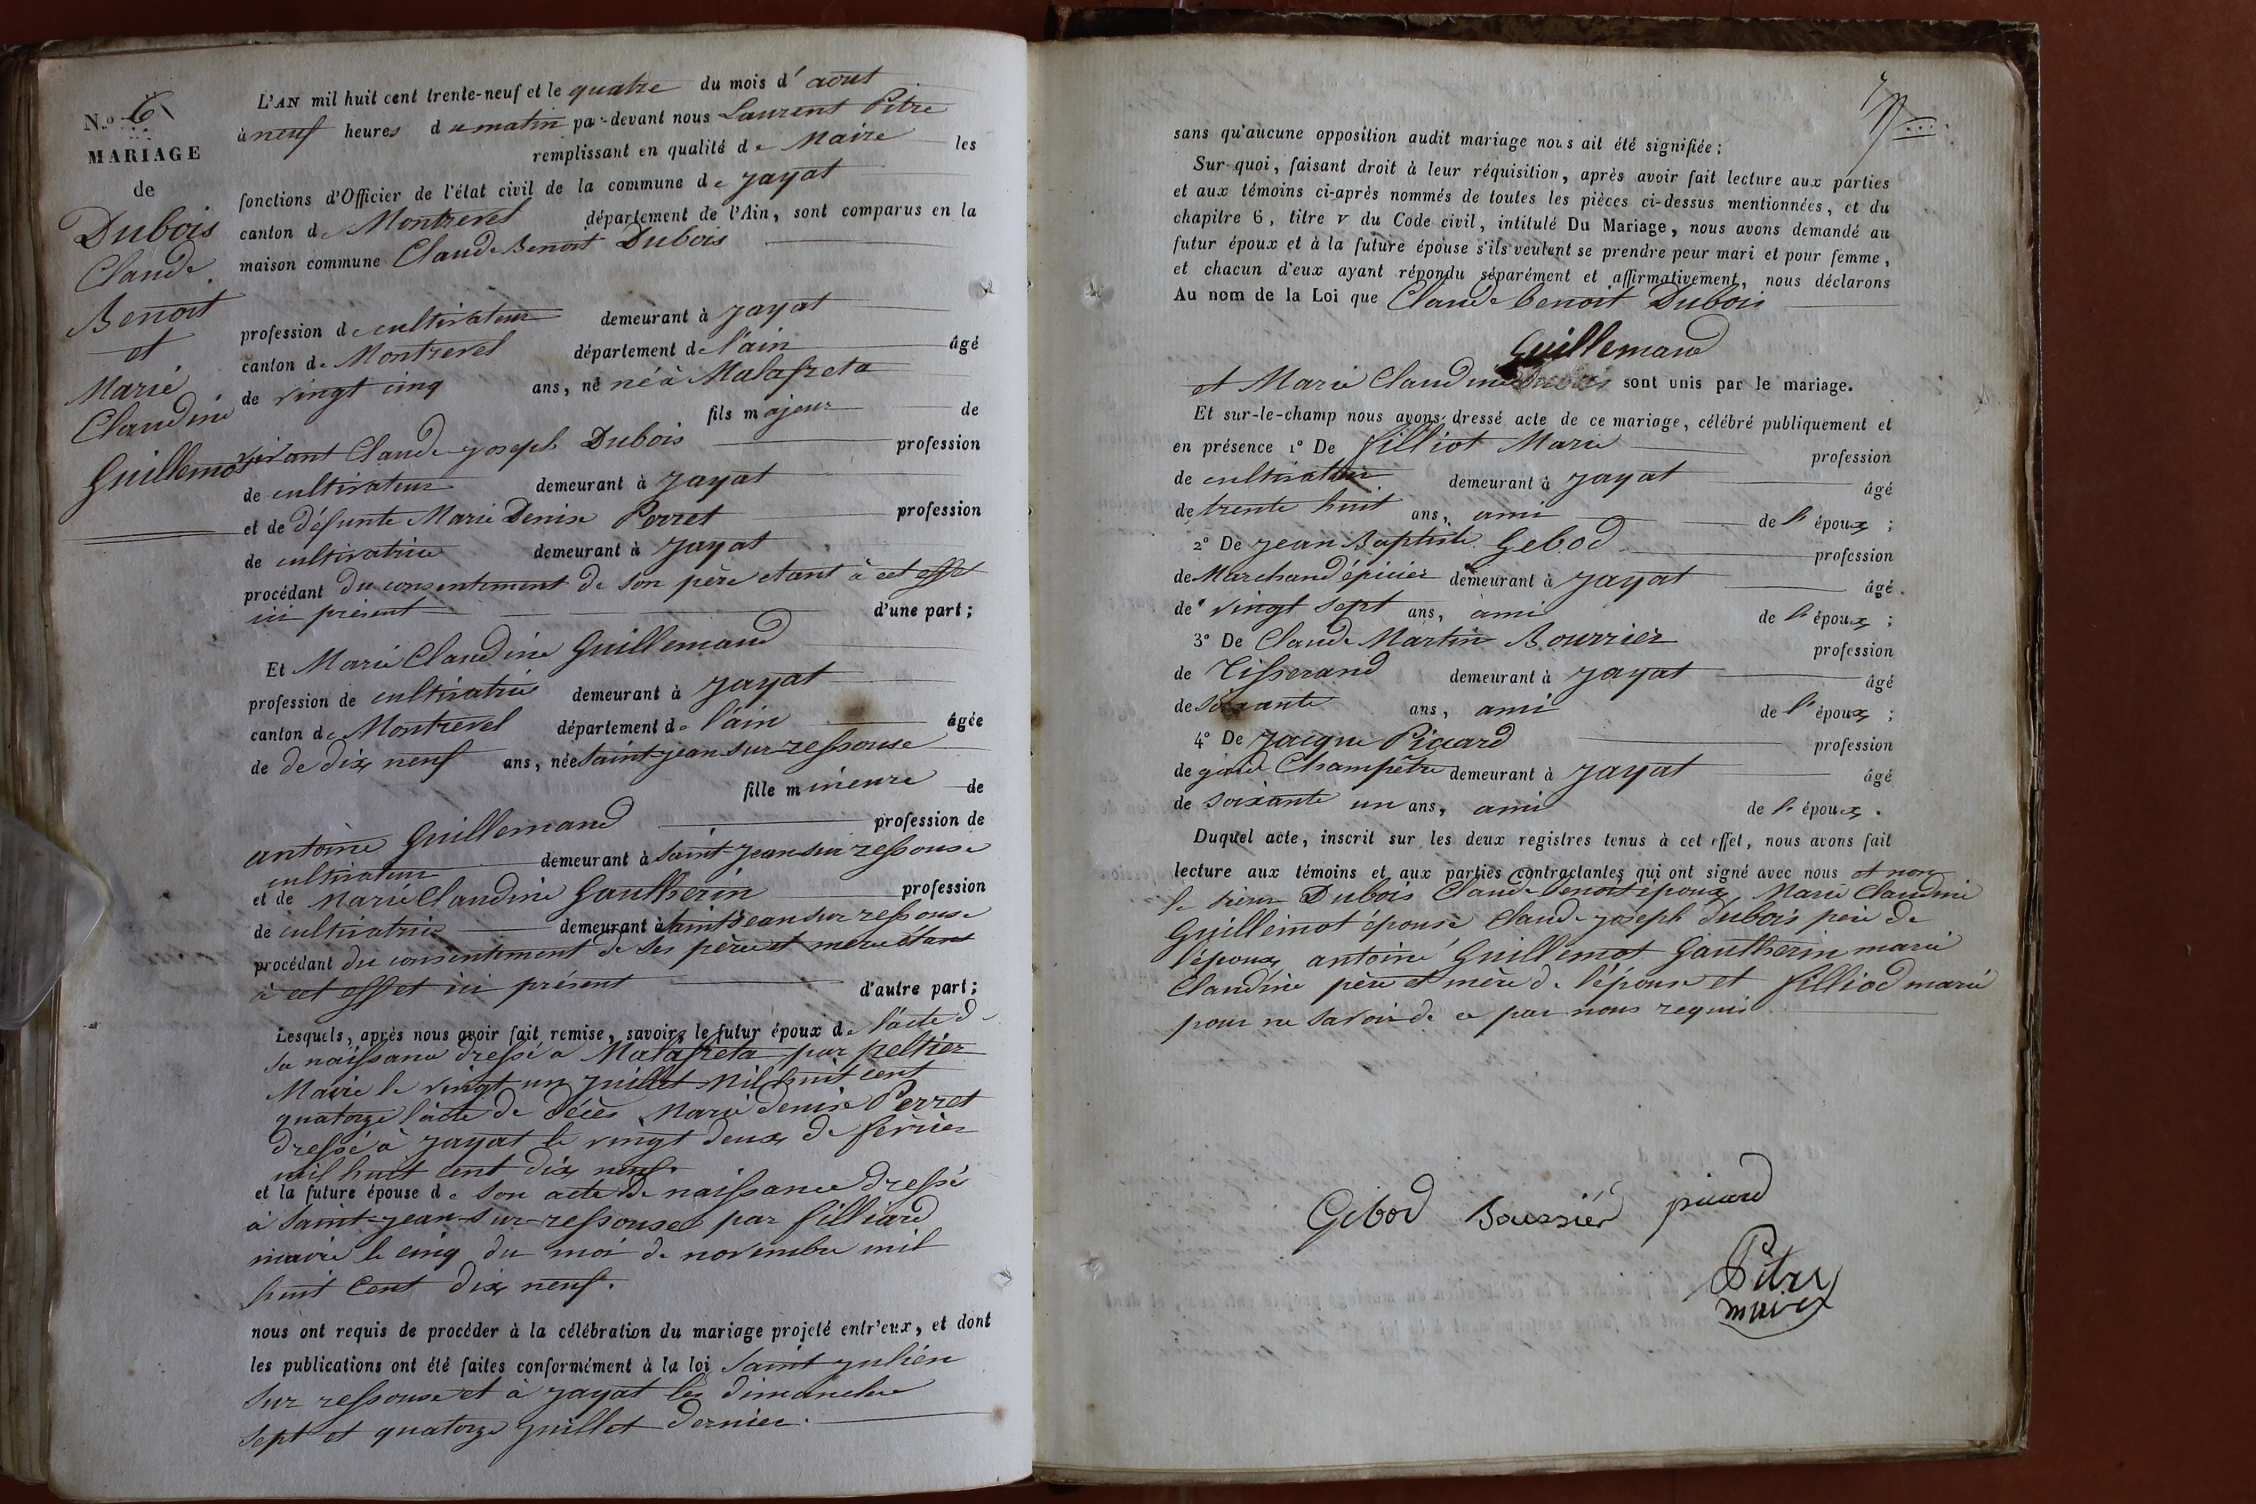 N.º 6
MARIAGE
de
Dubois
Claude
Benoit
et
Marie
Claudine
Guillemot
L'AN mil huit cent trente-neuf et le quatre du mois d'aout
à neuf heures du matin par-devant nous Laurent Pitre
remplissant en qualité de Maire les
fonctions d'Officier de l'état civil de la commune de Jayat
canton de Montrevel département de l'Ain, sont comparus en la
maison commune Claude Benoit Dubois
profession de cultivateur demeurant à Jayat
canton de Montrevel département de l'ain âgé
de vingt cinq ans, né né à Malafreta
fils majeur de
vivant Claude joseph Dubois profession
de cultivateur demeurant à Jayat
et de défunte Marie Denise Perret profession
de cultivatrice demeurant à Jayat
procédant du consentement de son père etant à cet effet
ici présent d'une part;
Et Marie Claudine Guillemaud
profession de cultivatrice demeurant à Jayat
canton de Montrevel département de l'ain âgée
de de dix neuf ans, née Saint jean sur ressouse
fille mineure de
antoine Guillemaud profession de
cultivateur demeurant à Saint Jean sur ressouse
et de Marie Claudine Gautherin profession
de cultivatrice demeurant à Saint Jean sur ressouse
procédant du consentement de ses père et mère étant
à cet effet ici présent d'autre part;
Lesquels, après nous avoir fait remise, savoir: le futur époux de l'acte de
sa naissance dressé a Malafreta par peltier
Maire le vingt un juillet Mil huit cent
quatorze l'acte de décès Marie denise Perret
dressé à Jayat le vingt deux de février
mil huit cent dix neuf.
et la future épouse de son acte de naissance dressé
à Saint jean sur ressouse par filliard
maire le cinq du moi de novembre mil
huit Cent dix neuf.
nous ont requis de procéder à la célébration du mariage projeté entr'eux, et dont
les publications ont été faites conformément à la loi Saint julien
sur ressouse et à Jayat les dimanche
sept et quatorze juillet dernier.
sans qu'aucune opposition audit mariage nous ait été signifiée;
Sur quoi, faisant droit à leur réquisition, après avoir fait lecture aux parties
et aux témoins ci-après nommés de toutes les pièces ci-dessus mentionnées, et du
chapitre 6, titre V du Code civil, intitulé Du Mariage, nous avons demandé au
futur époux et à la future épouse s'ils veulent se prendre pour mari et pour femme,
et chacun d'eux ayant répondu séparément et affirmativement, nous déclarons
Au nom de la Loi que Claude benoit Dubois
Guillemaud
et Marie Claudine sont unis par le mariage.
Et sur-le-champ nous avons dressé acte de ce mariage, célébré publiquement et
en présence 1º De filliot Marie profession
de cultivateur demeurant à Jayat âgé
de trente huit ans, ami de l'époux;
2º De Jean Baptiste Gebod profession
de Marchand épicier demeurant à Jayat âgé
de vingt sept ans, ami de l'époux;
3º De Claude Martin Bourrier profession
de Tisserand demeurant à Jayat âgé
de soixante ans, ami de l'époux;
4º De Jacque Picard profession
de garde Champêtre demeurant à Jayat âgé
de soixante un ans, ami de l'époux.
Duquel acte, inscrit sur les deux registres tenus à cet effet, nous avons fait
lecture aux témoins et aux parties contractantes qui ont signé avec nous et non
le sieur Dubois Claude benoit époux, Marie Claudine
Guillemot épouse Claude joseph Dubois père de
l'époux, antoine Guillemot Gautherin marie
Claudine père et mère de l'épouse et filliod marie
pour ne savoir de ce par nous requis
Gebod Bourrier picard
Pitre
maire